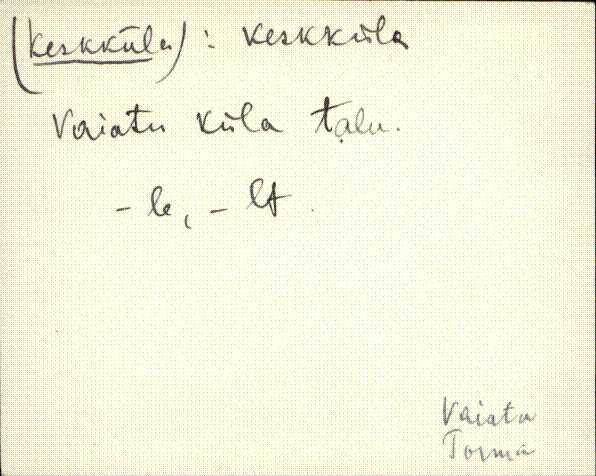 (Keskküla) : Keskküla
Vaiatu küla talu.
- le, - lt.
Vaiatu
Torma